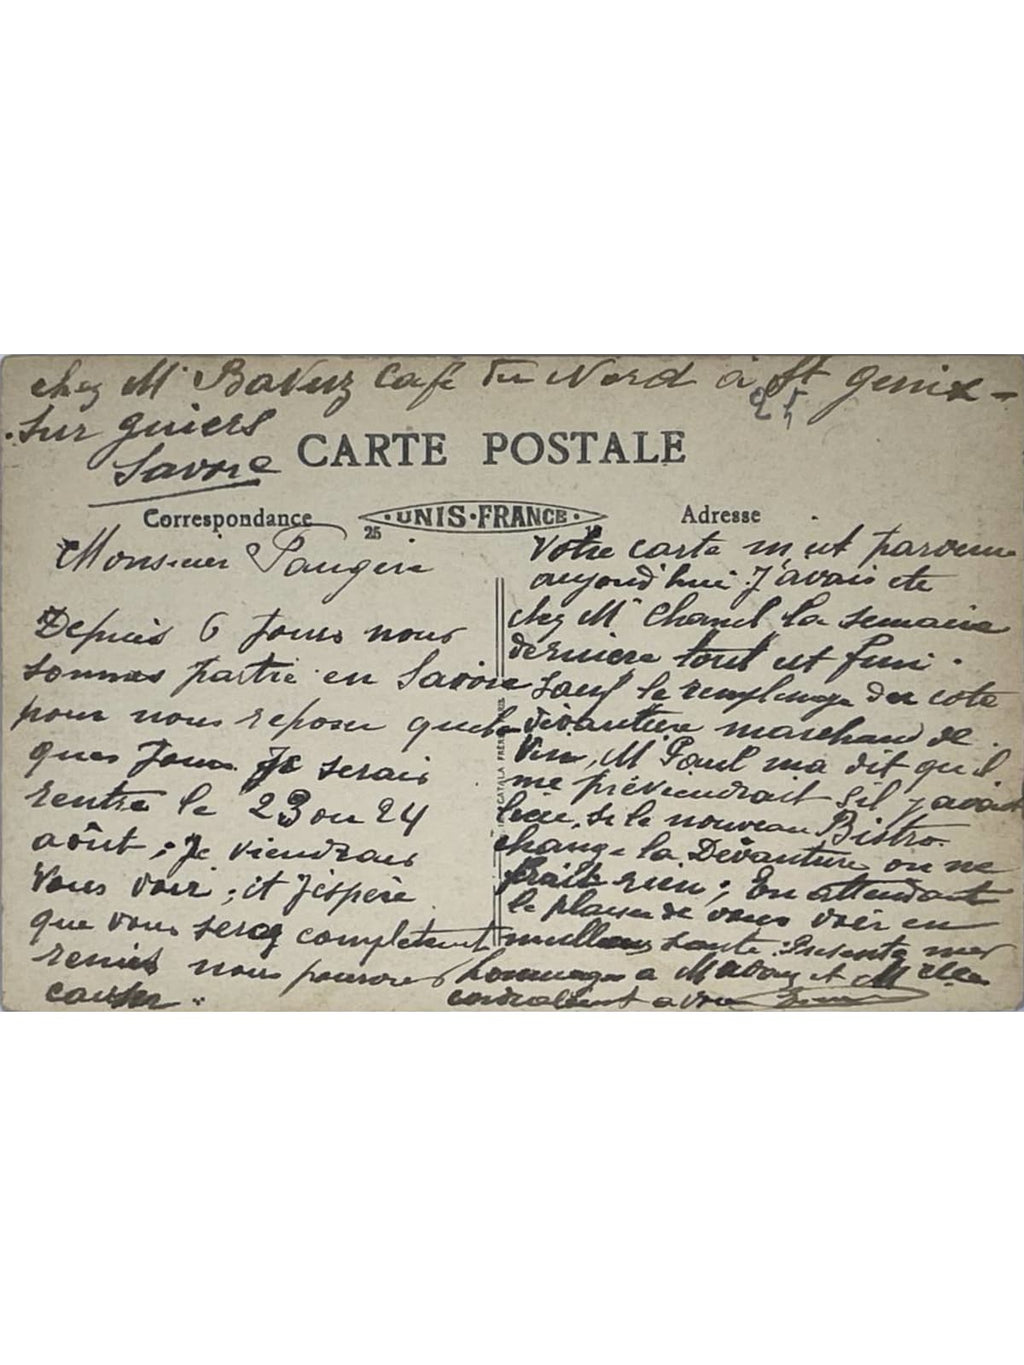 chez Mr Bavuz Café du Nord à St genix-
sur guiers
Savoie
25
CARTE POSTALE
Correspondance
UNIS-FRANCE
25
Adresse
Monsieur
Depuis 6 Jours nous
sommes partie en Savoie
pour nous reposer quel-
ques Jours Je serais
rentré le 23 ou 24
août ; Je viendrais
vous voir ; et J'espère
que vous serez completement
remis nous pourrons
causer
Votre carte m'est parvenue
aujourd'hui. J'avais ete
chez Mr Chanel la semaine
derniere tout est fini.
sauf le remplage du cote
devanture marchand de
Vin, M Paul ma dit qu'il
me préviendrait s'il y avait
lieu, si le nouveau Bistro
change la Devanture on ne
frait rien ; En attendant
le plaisir de vous voir en
meilleur sante. Presente mes
hommages a Madame et Mlle
cordialement a vous